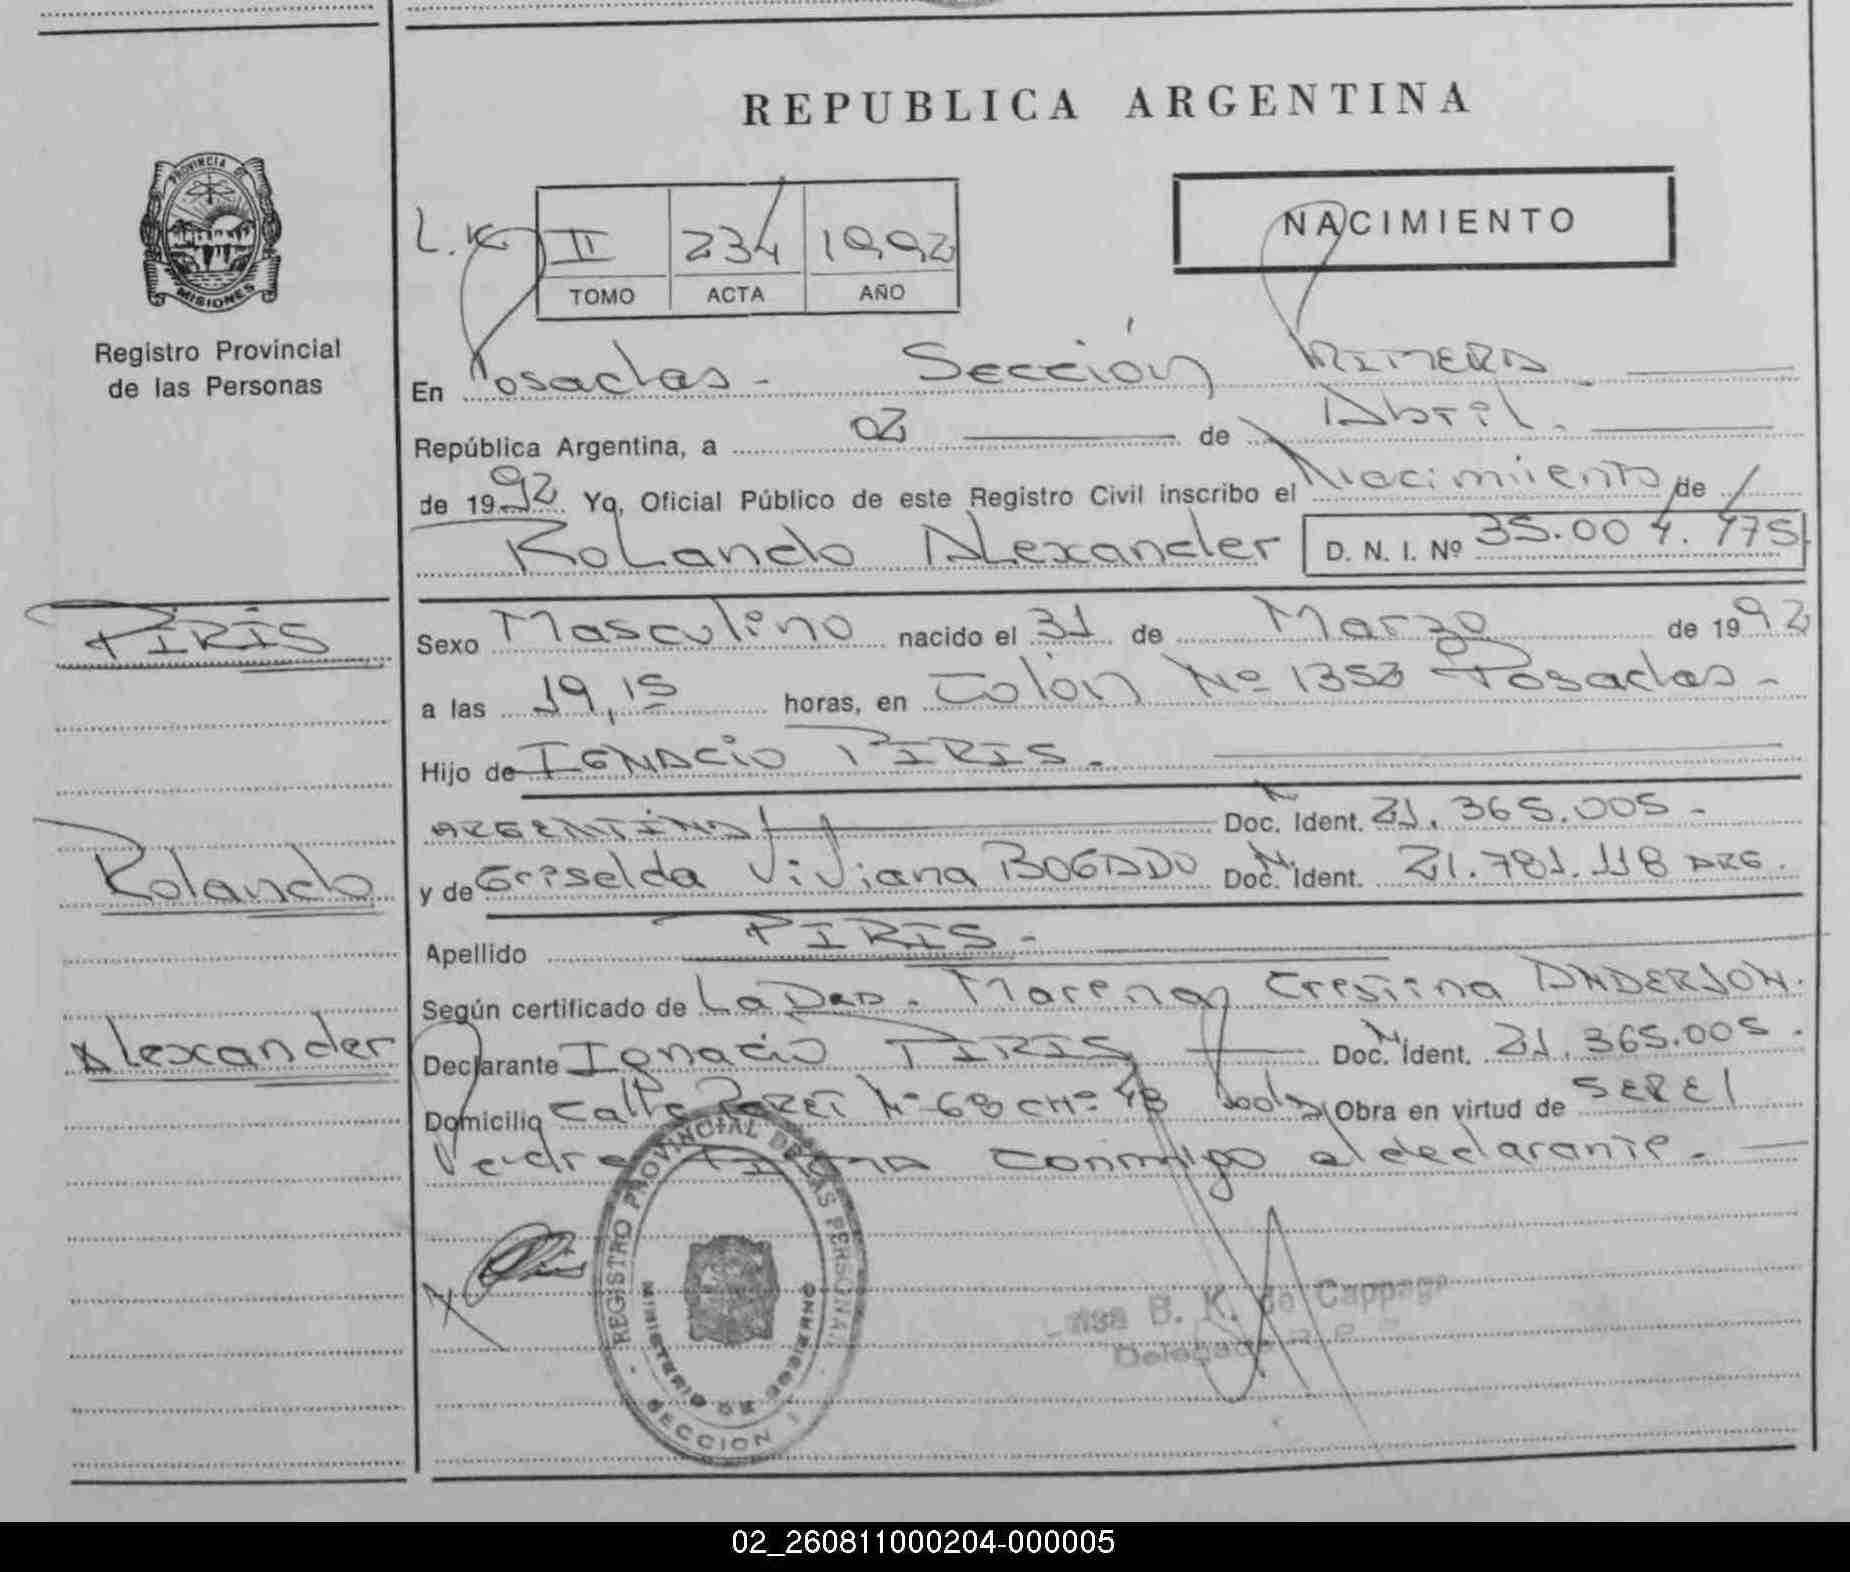 REPUBLICA ARGENTINA
PROVINCIA DE
MISIONES
Registro Provincial
de las Personas
NACIMIENTO
II 234 1992
TOMO ACTA AÑO
En Posadas - Sección Primera.
República Argentina, a 02 de Abril.
de 1992 Yo, Oficial Público de este Registro Civil inscribo el Nacimiento de
Rolando Alexander D. N. I. Nº 35.004.475
PIRIS
Sexo Masculino nacido el 31 de Marzo de 1992
a las 19,15 horas, en Colón Nº 1353 Posadas -
Hijo de IGNACIO PIRIS.
ARGENTINO Doc. Ident. 21.365.005 -
Rolando
y de Griselda Viviana BOGADO Doc. Ident. 21.781.118 ARG.
Apellido PIRIS -
Según certificado de La Dra. Morena Cristina ANDERSON.
Alexander
Declarante Ignacio PIRIS Doc. Ident. 21.365.005 .
Domicilio Calle Nº 68 CHº Obra en virtud de SER El
Padre conmigo el declarante. -
REGISTRO PROVINCIAL DE LAS PERSONAS
MINISTERIO DE GOBIERNO
SECCION
B. K. de
02_260811000204-000005